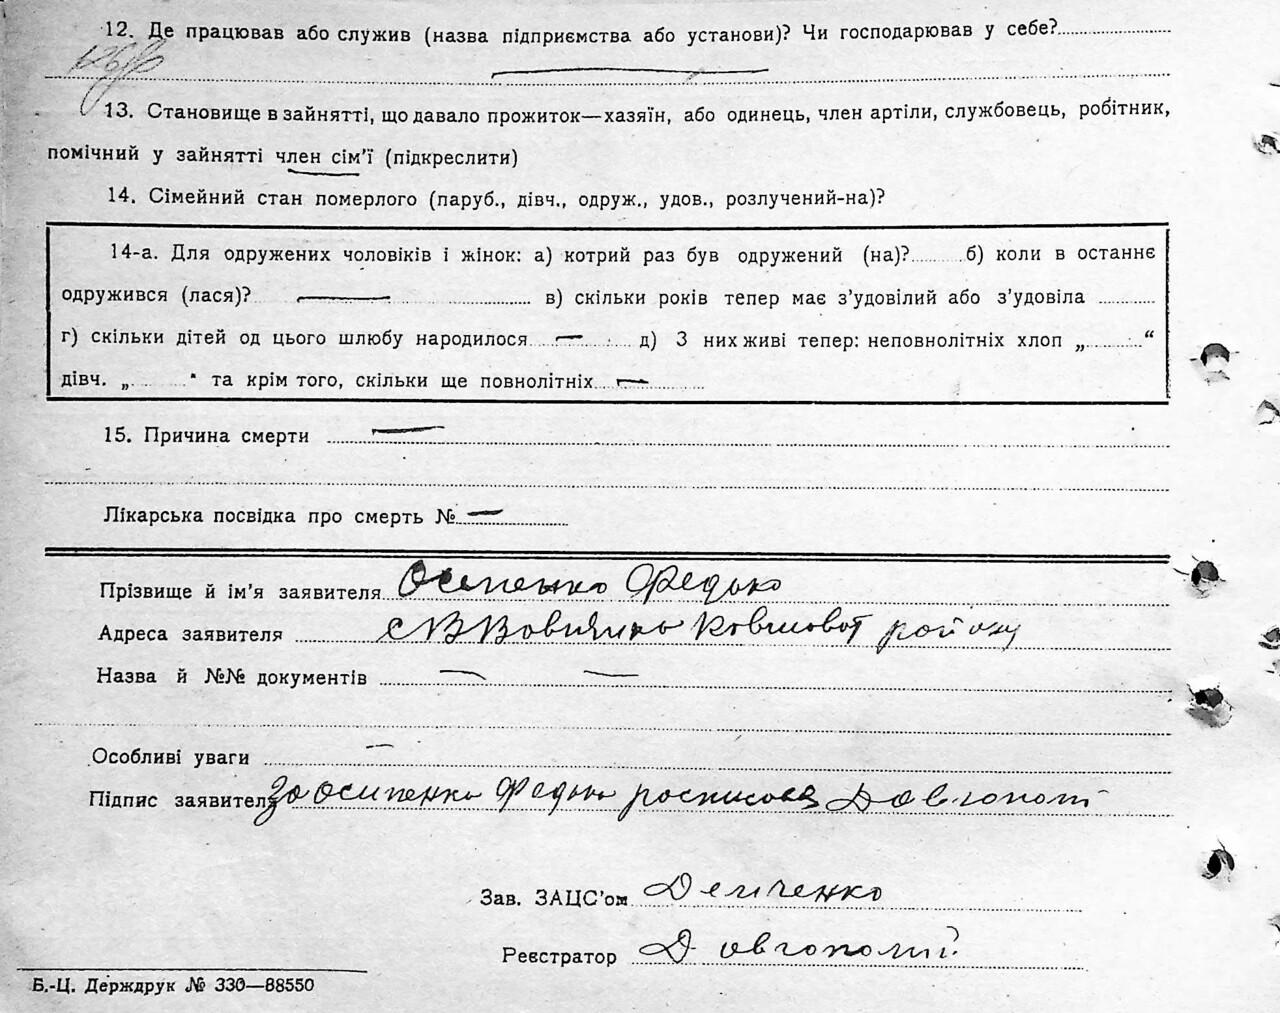 12. Де працював або служив (назва підприємства або установи)? Чи господарював у себе?
13. Становище в зайнятті, що давало прожиток—хазяїн, або одинець, член артіли, службовець, робітник,
помічний у зайнятті член сім’ї (підкреслити)
14. Сімейний стан померлого (паруб., дівч., одруж., удов., розлучений-на)?
14-а. Для одружених чоловіків і жінок: а) котрий раз був одружений (на)? б) коли в останнє
одружився (лася)? — в) скільки років тепер має з’удовілий або з’удовіла
г) скільки дітей од цього шлюбу народилося — д) З них живі тепер: неповнолітніх хлоп „ “
дівч. „ “ та крім того, скільки ще повнолітніх —
15. Причина смерти —
Лікарська посвідка про смерть № —
Прізвище й ім’я заявителя Осипенко Федько
Адреса заявителя район
Назва й №№ документів — —
Особливі уваги —
Підпис заявителя За Осипенка Федька Довгополий
Зав. ЗАЦС’ом Демченко
Реєстратор Довгополий
Б.-Ц. Держдрук № 330—88550